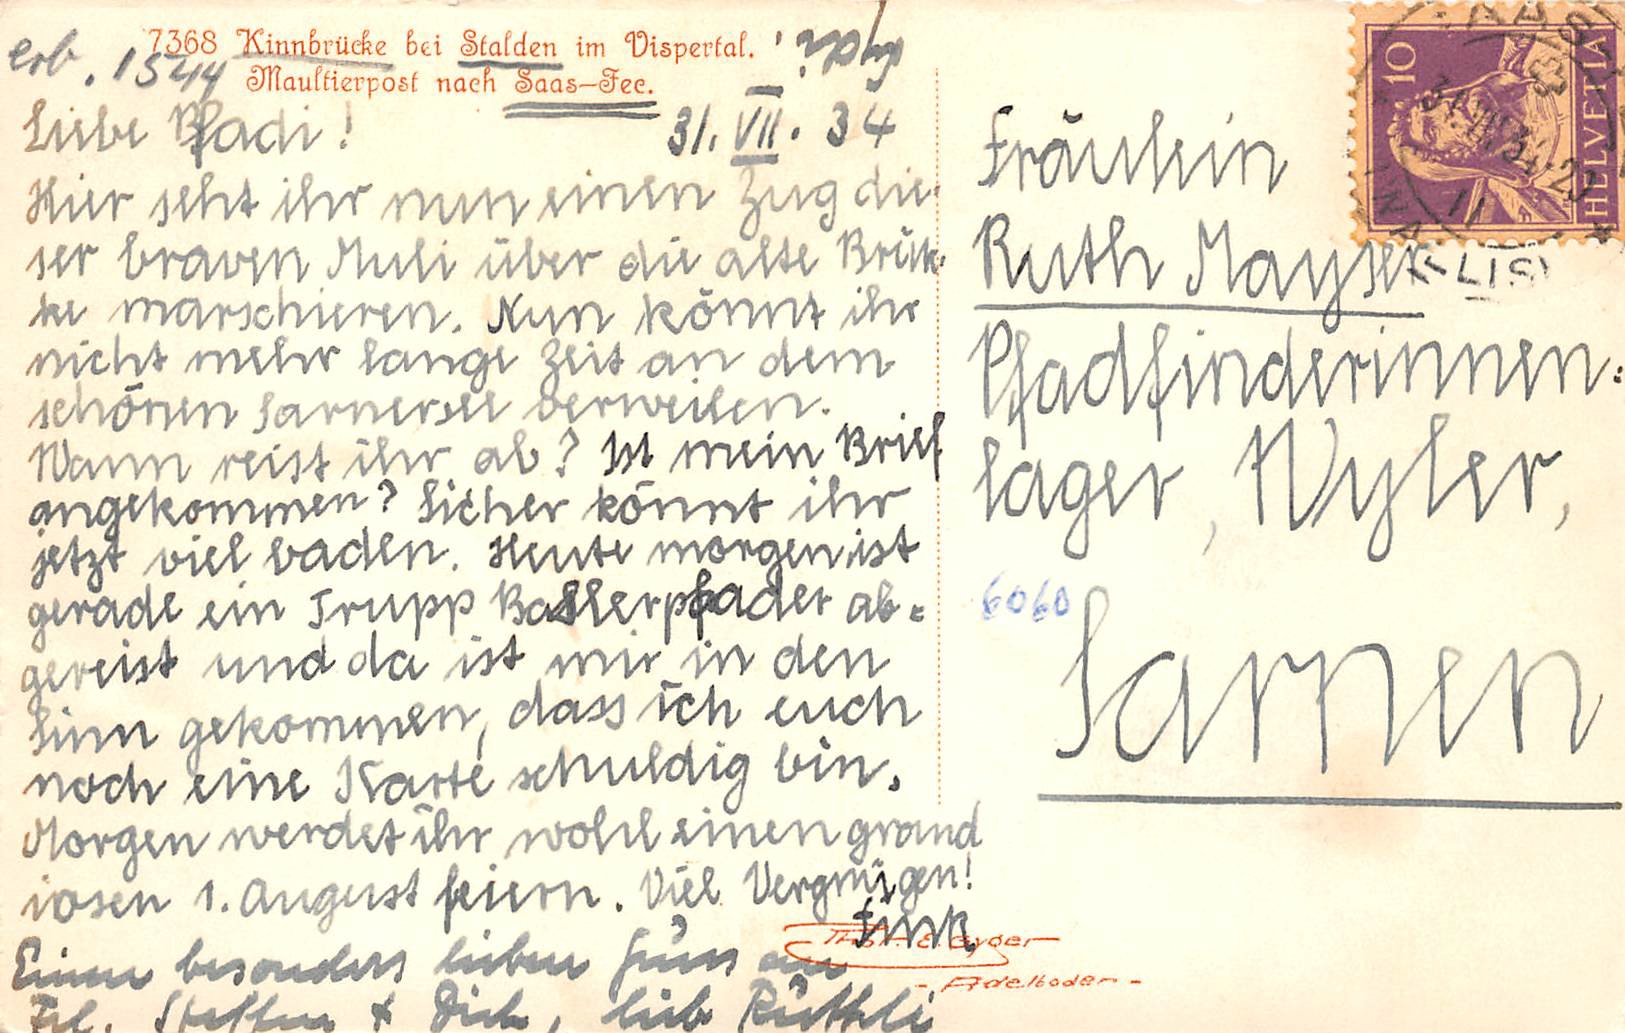 7368 Kinnbrücke bei Stalden im Vispertal.
Maultierpost nach Saas-Fee.
erb. 1544
31. VII. 34
Liebe Pfadi!
Hier seht ihr nun einen Zug die-
ser braven Muli über die alte Brük-
ke marschieren. Nun könnt ihr
nicht mehr lange Zeit an dem
schönen Sarnersee verweilen.
Wann reist ihr ab? Ist mein Brief
angekommen? Sicher könnt ihr
jetzt viel baden. Heute morgen ist
gerade ein Trupp Baslerpfader ab=
gereist und da ist mir in den
Sinn gekommen, dass ich euch
noch eine Karte schuldig bin.
Morgen werdet ihr wohl einen grand
iosen 1. August feiern. Viel Vergnügen!
Fink
Einen besonders lieben Gruss an
Frl. Steffen & Dich, lieb Rüthli
Phot. E. Gyger
- Adelboden -
10
HELVETIA
31.VII.34-23
Fräulein
Ruth Mayser
Pfadfinderinnen=
lager, Wyler,
6060
Sarnen